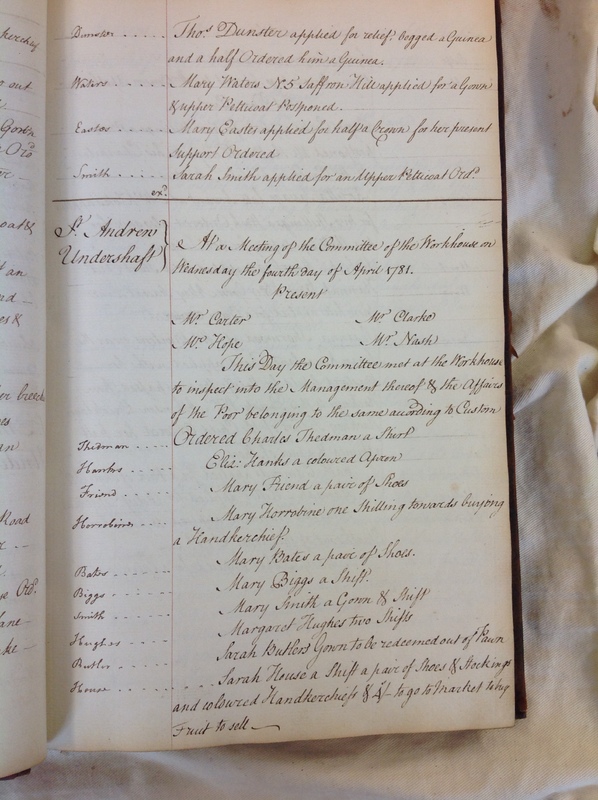 Dunster - - - - - Tho.s Dunster applied for relief, begged a Guinea
and a half Ordered him a Guinea.
Waters - - - - - Mary Waters No. 5 Saffron Hill applied for a Gown
& upper Petticoat Postponed.
Easter - - - - - Mary Easter applied for half a Crown for her present
Support Ordered
Smith - - - - - Sarah Smith applied for an Upper Petticoat Ord.d
ex.d
St. Andrew
Undershaft }
At a Meeting of the Committee of the Workhouse on
Wednesday the fourth day of April 1781.
Present
Mr. Carter Mr. Clarke
Mr. Hope Mr. Nash
This Day the Committee met at the Workhouse
to inspect into the Management thereof & the Affairs
of the Poor belonging to the same according to Custom
Thedman - - - - Ordered Charles Thedman a Shirt
Hanks - - - - - Eliz: Hanks a coloured Apron
Friend - - - - - Mary Friend a pair of Shoes
Horrobine - - - - Mary Horrobine one Shilling towards buying
a Handkerchief.
Bates - - - - - - Mary Bates a pair of Shoes.
Biggs - - - - - - Mary Biggs a Shift.
Smith - - - - - - Mary Smith a Gown & Shift
Hughes - - - - - Margaret Hughes two Shifts
Butler - - - - - Sarah Butlers Gown to be redeemed out of Pawn
House - - - - - - Sarah House a Shift a pair of Shoes & Stockings
and coloured Handkerchief & 1/- to go to Market to buy
Fruit to sell —